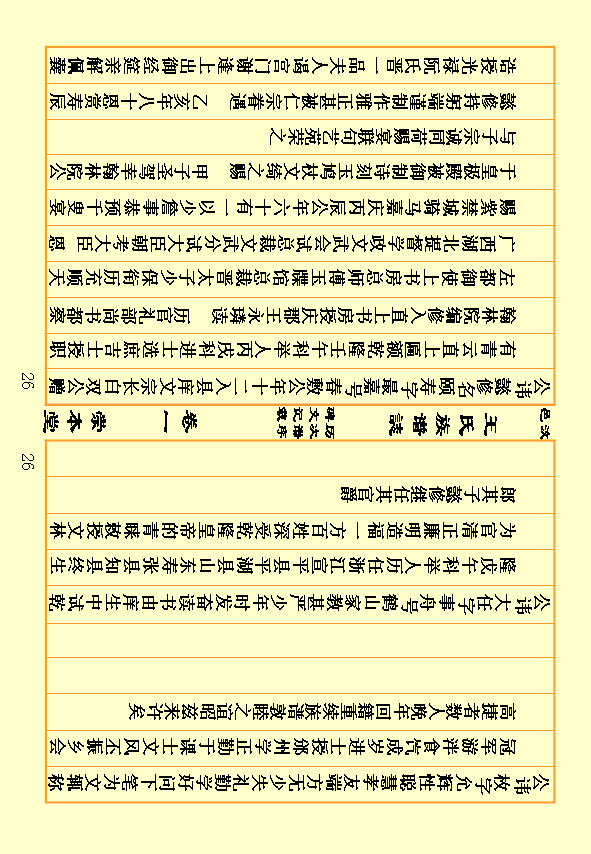 公讳枚字允辉性聪慧孝友端方无少失礼勤学好问下笔为文辄称
冠军游泮食饩成岁进士授邠州学正勤于课士文风丕振乡会
高捷者数人晚年回籍重续族谱敦睦之谊昭兹来许矣
公讳大任字事舟号鹤山家教甚严少年时发奋读书由庠生中试乾
隆戊午科举人历任浙江宣平县平湖县山东寿张县知县终生
为官清正廉明造福一方百姓深受乾隆皇帝的青睐敕授文林
郎其子懿修继任其官爵
26
汶邑
王氏族谱誌
历次谱序
碑文记载
卷一
崇本堂
26
公讳懿修名颐寿字最嘉号春敷公十二入县庠文宗长白双公赠
有青云直上匾额乾隆壬午科举人丙戌科进士选庶吉士授职
翰林院编修入直上书房授庆郡王永璘读 历官礼部尚书都察
左都御使上书房总师傅玉牒馆总裁晋太子少保衔历充顺天
广西湖北提督学政文武会试总裁文武分试大臣朝考大臣 恩
赐紫禁城骑马嘉庆丙辰公年六十有一 以少詹事恭预千叟宴
于皇极殿被御制诗刻玉鸠杖文绮之赐 甲子圣驾幸翰林院公
与子宗诚同荷赐宴联句艺苑荣之
懿修持躬端谨制作雅正甚被仁宗眷遇 乙亥年八十恩赏寿辰
诰授光禄阮氏晋一品夫人谒宫门谢逢上出御经筵亲解佩囊